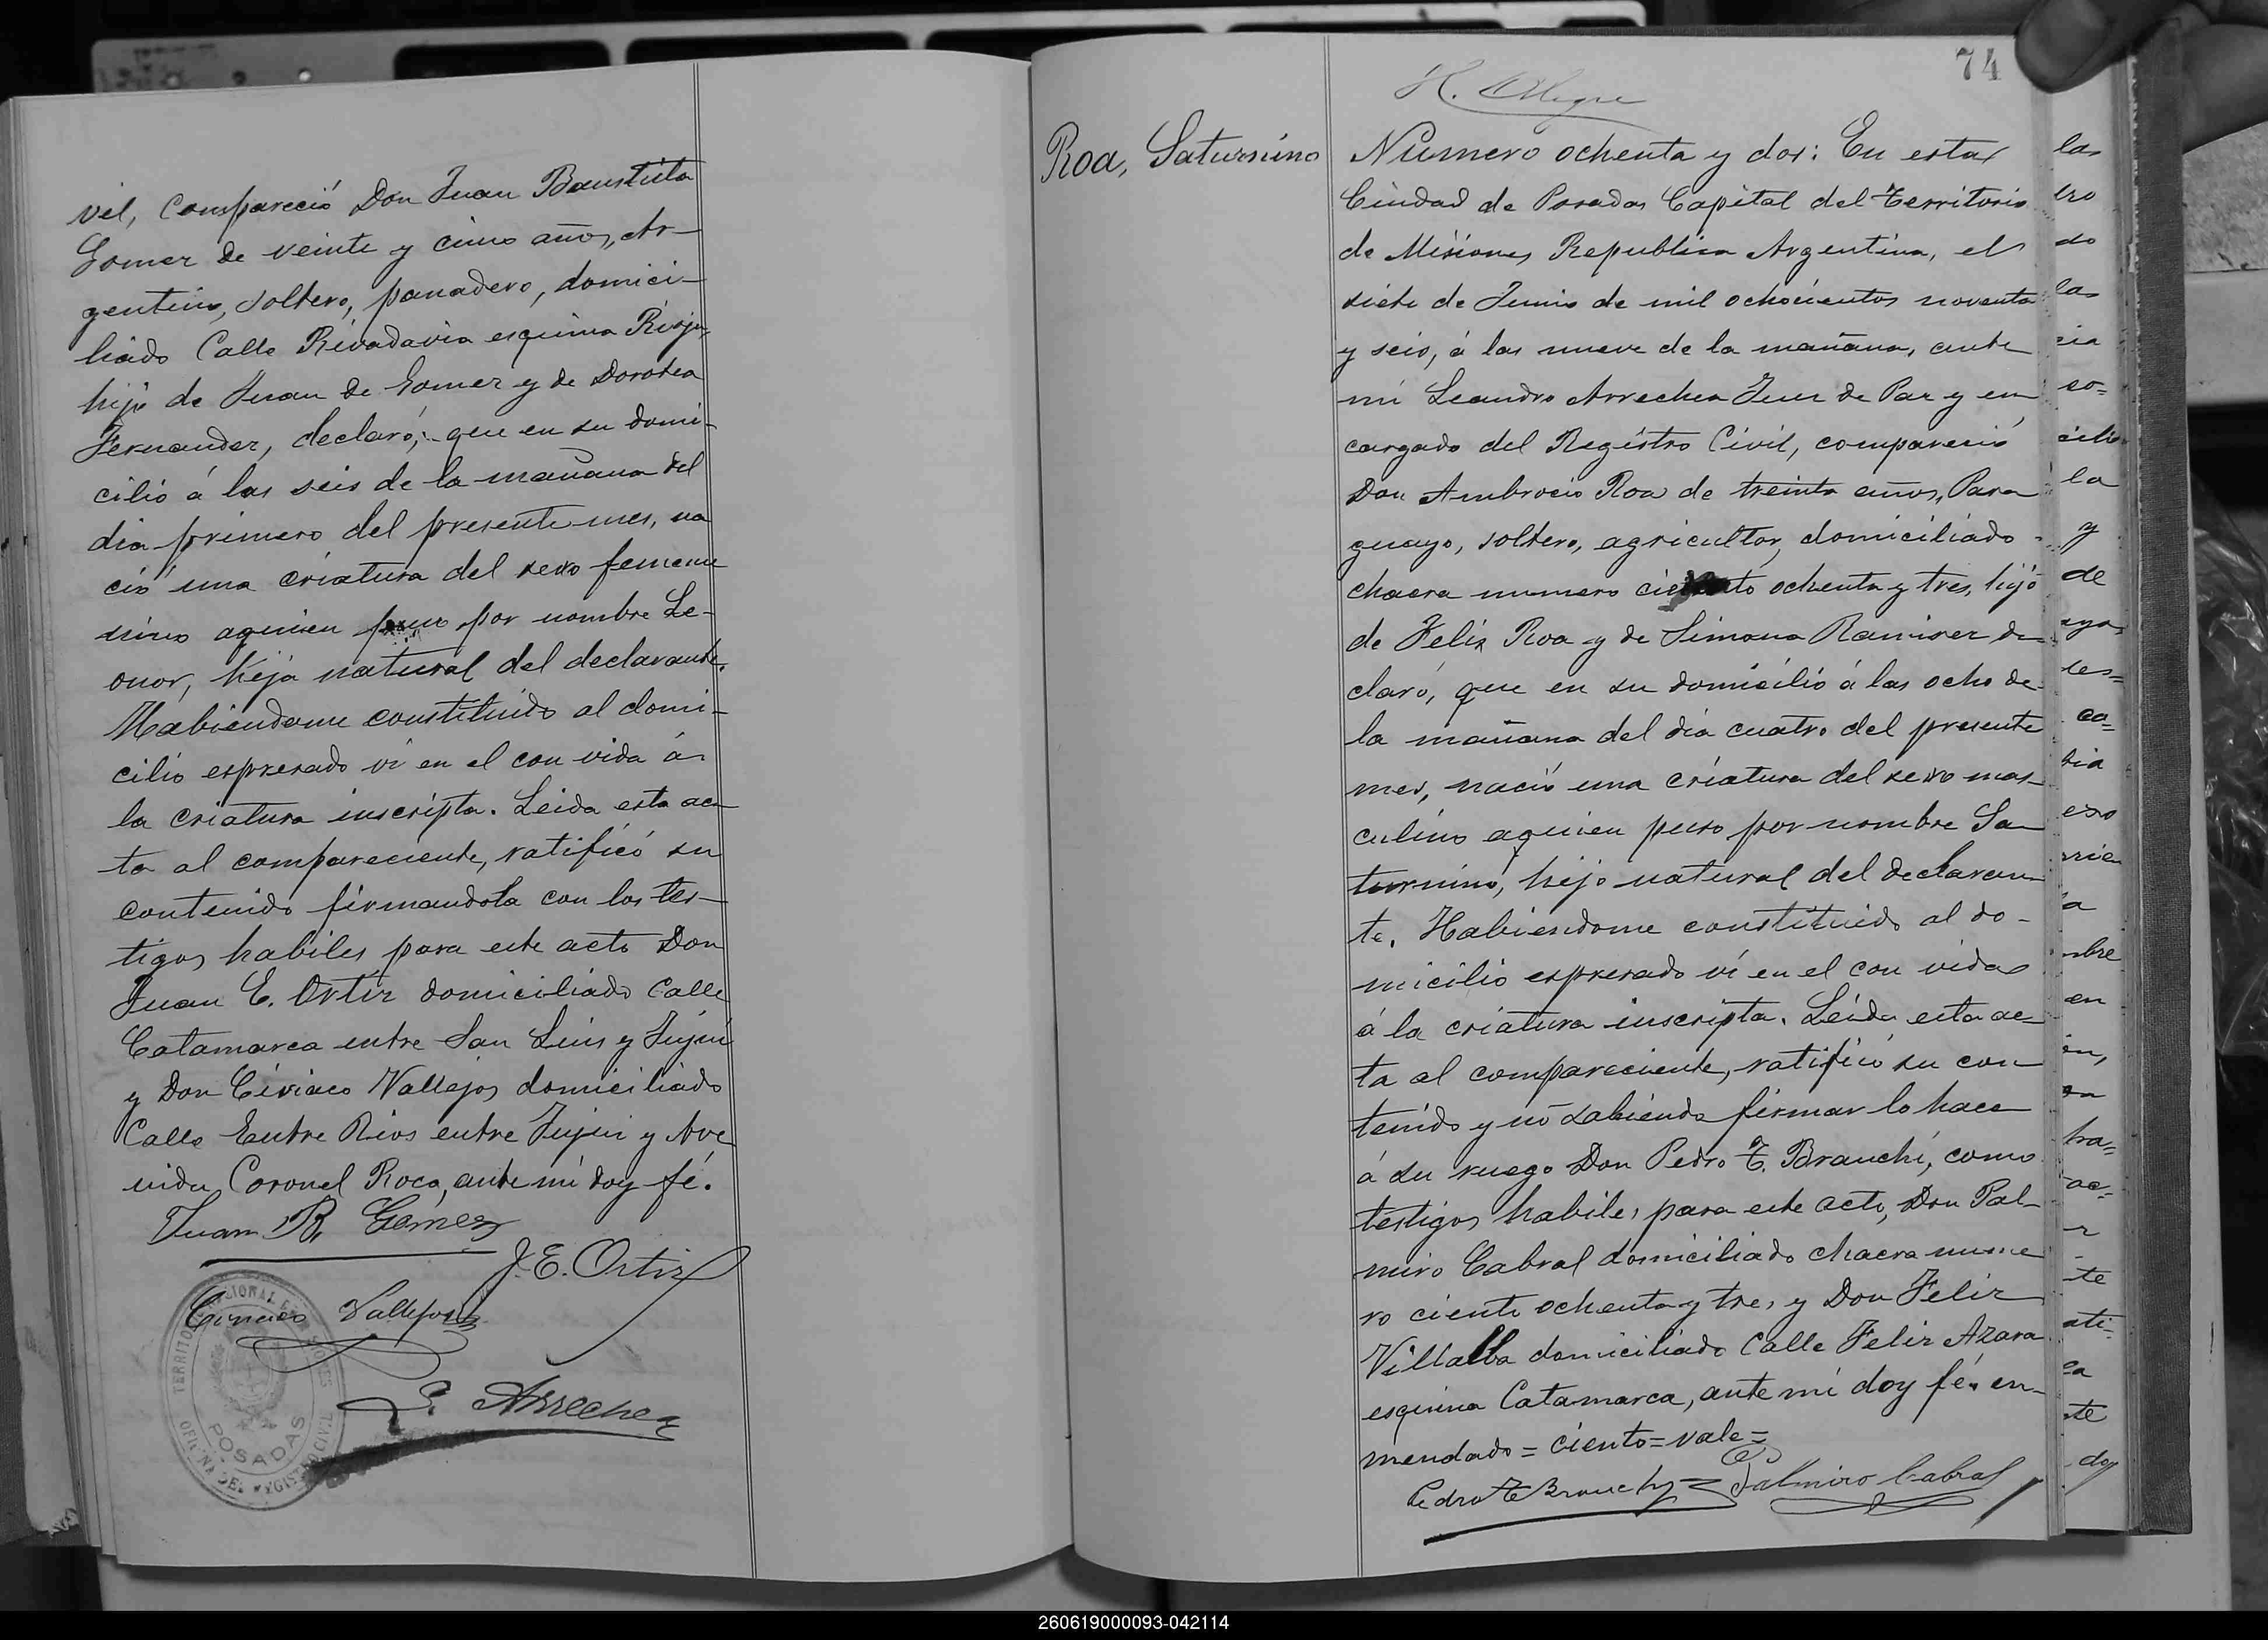 vil, compareció Don Juan Bautista
Gomez de veinte y cinco años, Ar-
gentino, soltero, panadero, domici-
liado Calle Rivadavia esquina Rioja,
hijo de Juan de Gomez y de Dorotea
Fernandez, declaró; que en su domi-
cilio á las seis de la mañana del
dia primero del presente mes, na
ció una criatura del sexo femeni
nino aquien puso por nombre Le-
onor, hija natural del declarante.
Habiendome constituido al domi-
cilio espresado ví en el con vida á
la criatura inscripta. Leida esta ac
ta al compareciente, ratificó su
contenido firmandola con los tes-
tigos habiles para este acto Don
Juan E. Ortiz domiciliado Calle
Catamarca entre San Luis y Jujuí
y Don Ciriaco Vallejos domiciliado
Calle Entre Rios entre Jujui y Ave
nida Coronel Roca, ante mí doy fé.
Juan B. Gómez
J. E. Ortiz
Ciriaco Vallejos
L. Arrechea
TERRITORIO NACIONAL DE MISIONES
POSADAS
OFICINA DEL REGISTRO CIVIL
74
H. Alegre
Roa, Saturnino
Numero ochenta y dos: En esta
Ciudad de Posadas Capital del Territorio
de Misiones Republica Argentina, el
siete de Junio de mil ochocientos noventa
y seis, á las nueve de la mañana, ante
mí Leandro Arrechea Juez de Paz y en
cargado del Registro Civil, compareció
Don Ambrocio Roa de treinta años, Para
guayo, soltero, agricultor, domiciliado
chacra numero ciento ochenta y tres, hijo
de Felix Roa y de Simona Ramirez de
claró, que en su domicilio á las ocho de
la mañana del día cuatro del presente
mes, nació una criatura del sexo mas
culino aquien puso por nombre Sa
turnino, hijo natural del declaran
te. Habiendome constituido al do-
micilio espresado ví en el con vida
á la criatura inscripta. Leída esta ac
ta al compareciente, ratificó su con
tenido y nó sabiendo firmar lo hace
á su ruego Don Pedro T. Branchi, como
testigos habiles para este acto, Don Pal-
miro Cabral domiciliado chacra nume
ro ciento ochenta y tres, y Don Felix
Villalba domiciliado Calle Felix Azara
esquina Catamarca, ante mí doy fé. en-
mendado = ciento = vale =
Pedro T Branchy Palmiro Cabral
las
tro
do
las
cia
so=
cilio
la
y
de
ayo,
tes=
ca=
bia
exo
a
mbre
en
tra=
ac=
te
ati-
ca
te
doy
260619000093-042114